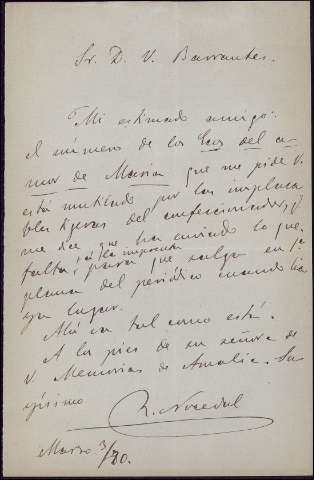 Sr. D. V. Barrantes.
Mi estimado amigo:
el número de los Ecos del a-
mor de María que me pide V.
está mutilado por las implaca
bles tijeras del confeccionador, q.
me dice que ha enviado lo que
falta, á la imprenta para que salga en 1ª
plana del periódico cuando ha
ya lugar.
Allá va tal como está.
A los pies de su señora de
V. Memorias de Amalia. Su
afmo
R. Nocedal
Marzo 3/80.